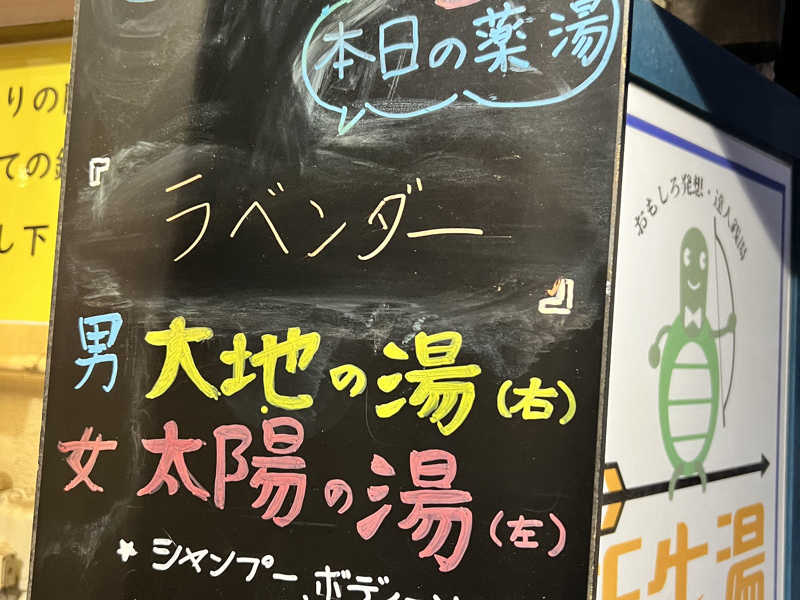 本日の薬湯
『
ラベンダー
』
男 大地の湯（右）
女 太陽の湯（左）
★ シャンプー、ボディー
りの
ての
し下
おもしろ発想・達人銭湯
生湯